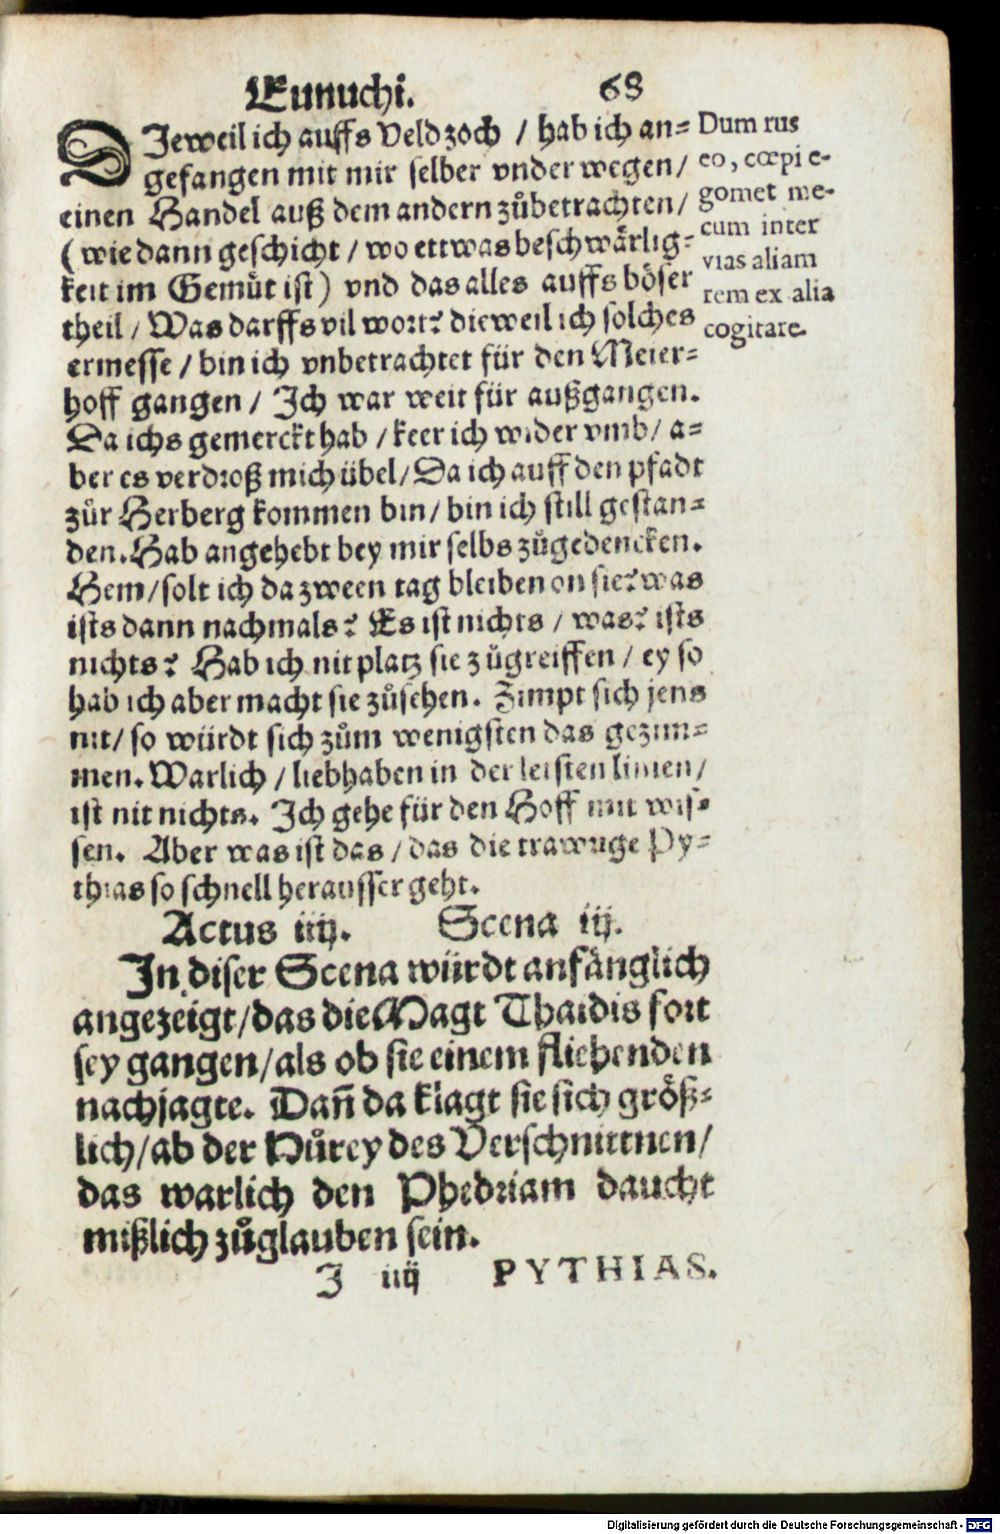 Eunuchi. 68
DJeweil ich auffs Veld zoch / hab ich an=
gefangen mit mir selber vnder wegen /
einen Handel auß dem andern zůbetrachten /
(wie dann geschicht / wo ettwas beschwärlig=
keit im Gemüt ist) vnd das alles auffs böser
theil / Was darffs vil wort? dieweil ich solches
ermesse / bin ich vnbetrachtet für den Meier=
hoff gangen / Jch war weit für außgangen.
Da ichs gemerckt hab / keer ich wider vmb / a=
ber es verdroß mich übel / Da ich auff den pfadt
zůr Herberg kommen bin / bin ich still gestan=
den. Hab angehebt bey mir selbs zůgedencken.
Hem / solt ich da zween tag bleiben on sie? was
ists dann nachmals? Es ist nichts / was? ists
nichts? Hab ich nit platz sie zůgreiffen / ey so
hab ich aber macht sie zůsehen. Zimpt sich jens
nit / so würdt sich zům wenigsten das gezim=
men. Warlich / liebhaben in der leisten linien /
ist nit nichts. Jch gehe für den Hoff mit wis=
sen. Aber was ist das / das die trawrige Py=
thias so schnell herausser geht.
Dum rus
eo, cœpi e-
gomet me-
cum inter
vias aliam
rem ex alia
cogitare.
Actus iiij. Scena iij.
Jn diser Scena würdt anfänglich
angezeigt / das die Magt Thaidis fort
sey gangen / als ob sie einem fliehenden
nachjagte. Dañ da klagt sie sich größ=
lich / ab der Hůrey des Verschnittnen /
das warlich den Phedriam daucht
mißlich zůglauben sein.
J iiij PYTHIAS.
Digitalisierung gefördert durch die Deutsche Forschungsgemeinschaft - DFG